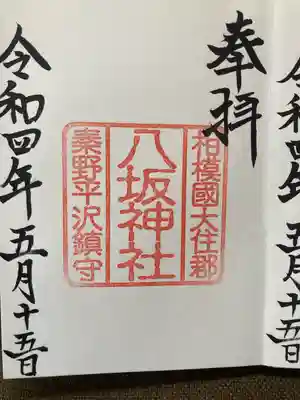 奉拝
相模國大住郡
八坂神社
秦野平沢鎮守
令和四年 五月十五日
令和四年 五月十五日